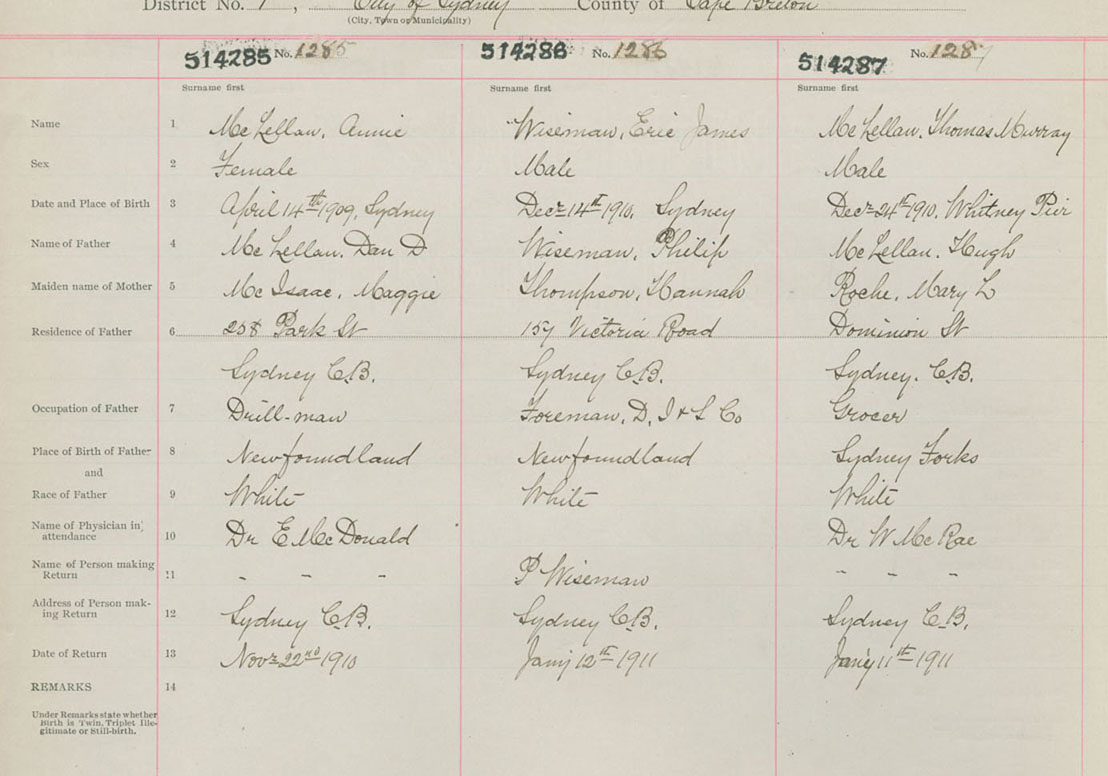 District No. 1, City of Sydney County of Cape Breton
(City, Town or Municipality)
514285 No. 1285 514286 No. 1286 514287 No. 1287
Surname first Surname first Surname first
Name 1 McLellan, Annie Wiseman, Eric James McLellan, Thomas Murray
Sex 2 Female Male Male
Date and Place of Birth 3 April 14th 1909, Sydney Decr 14th 1910, Sydney Decr 24th 1910, Whitney Pier
Name of Father 4 McLellan, Dan D Wiseman, Philip McLellan, Hugh
Maiden name of Mother 5 McIsaac, Maggie Thompson, Hannah Roche, Mary L
Residence of Father 6 258 Park St 157 Victoria Road Dominion St
Sydney C.B. Sydney C.B. Sydney. C.B.
Occupation of Father 7 Drill-man Foreman, D. I & S Co Grocer
Place of Birth of Father 8 Newfoundland Newfoundland Sydney Forks
and
Race of Father 9 White White White
Name of Physician in
attendance 10 Dr E McDonald Dr W McRae
Name of Person making
Return 11 - - - P Wiseman - - -
Address of Person mak-
ing Return 12 Sydney C.B. Sydney C.B. Sydney C.B.
Date of Return 13 Novr 22nd 1910 Jany 12th 1911 Jany 11th 1911
REMARKS 14
Under Remarks state whether
Birth is Twin, Triplet Ille-
gitimate or Still-birth.